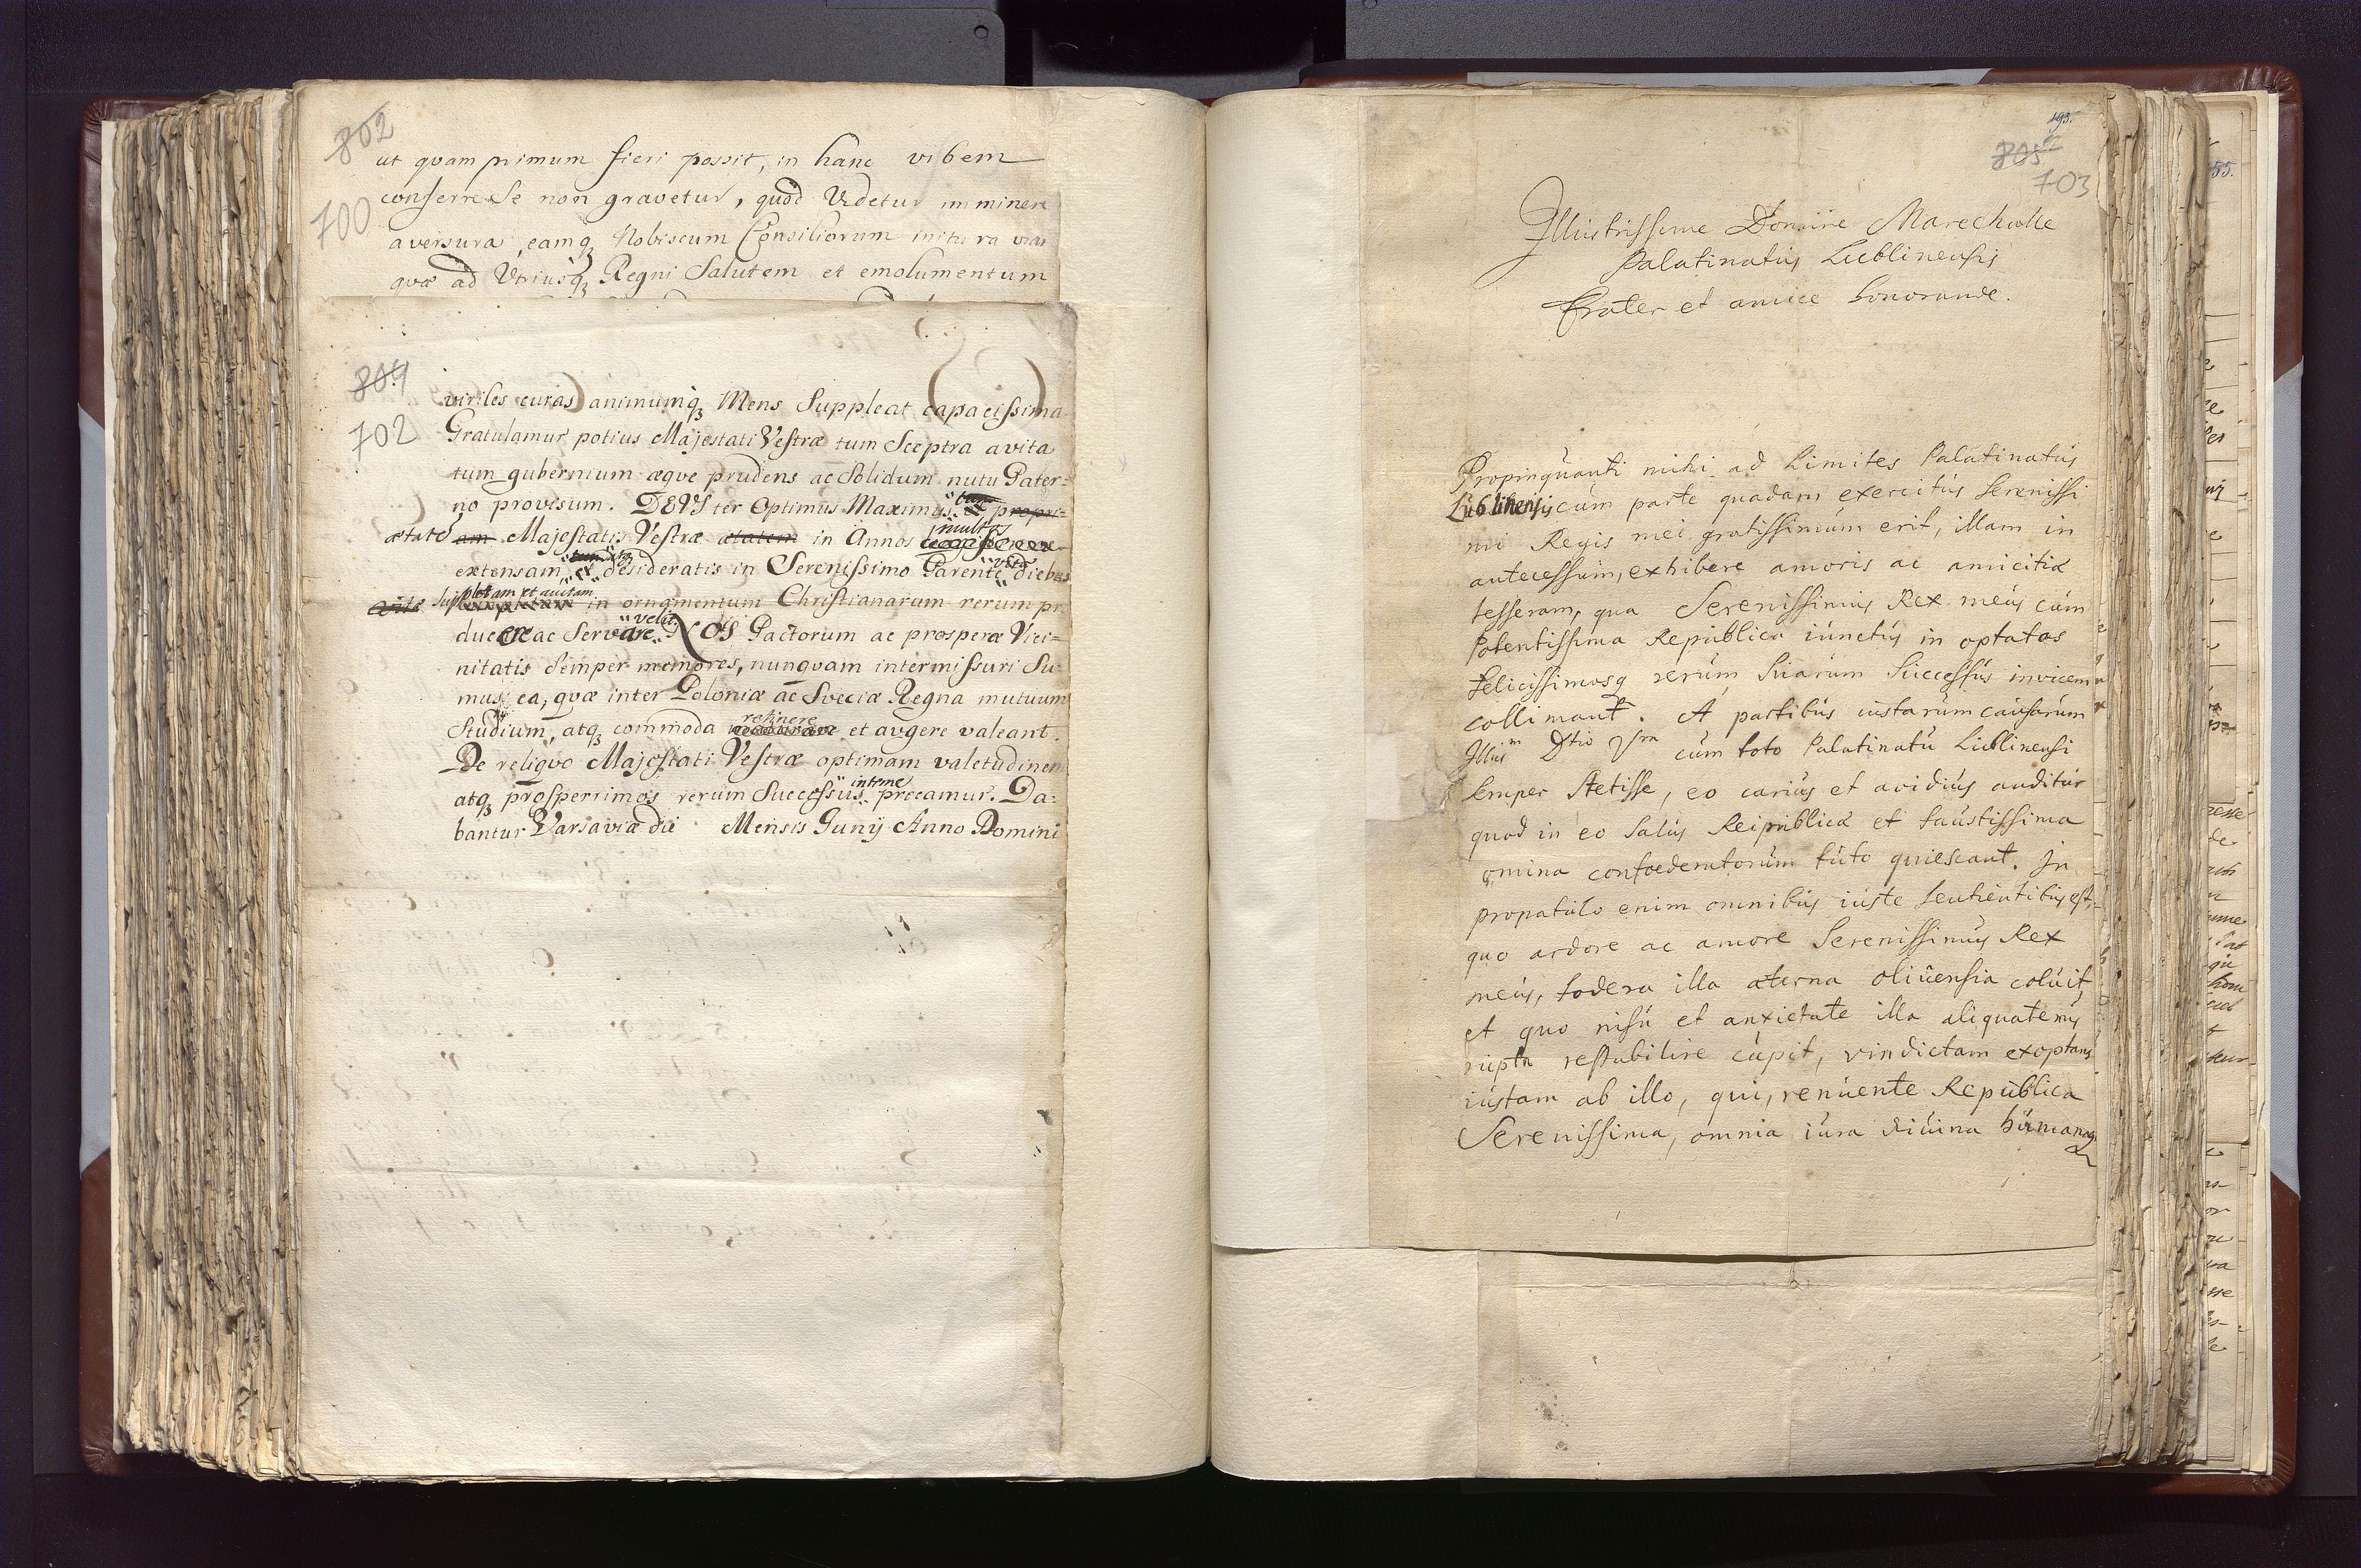 802
ut quam primum fieri possit, in hanc vrbem
700
conferre Se non gravetur, quod Videtur imminere
aversura, eamq3 Nobiscum Consiliorum initura viam
quæ ad Utriusq3 Regni Salutem et emolumentum
804
viriles curas animumq3 Mens Suppleat capacissima
702
Gratulamur potius Majestati Vestræ tum Sceptra avita
tum gubernium æqve prudens ac Solidum nutu Pater=
no provisum. DEVS ter Optimus Maximus propri=
ætate am Majestatis Vestræ ætatem in Annos multos
extensam, et desideratis in Serenissimo Parente vitæ diebus
Suppletam et auctam in ornamentum Christianarum rerum pro
ducere ac Servare velit. NOS Pactorum ac prosperæ Vici=
nitatis Semper memores, nunqvam intermissuri Su=
mus ea, qvæ inter Poloniæ ac Sveciæ Regna mutuum
Studium, atq3 commoda retinere et augere valeant.
De reliqvo Majestati Vestræ optimam valetudinem
atq3 prosperrimos rerum Successus intime precamur. Da=
bantur Varsaviæ die Mensis Junij Anno Domini
195.
805
703
Illustrissime Domine Marechalle
Palatinatus Lublinensis
Frater et amice honorande.
Propinquanti mihi ad Limites Palatinatus
Lublinensis cum parte quadam exercitus Serenissi
mi Regis mei gratissimum erit, illam in
antecessum, exhibere amoris ac amicitiæ
tesseram, qua Serenissimus Rex meus cum
Potentissima Republica iunctus in optatos
felicissimosq rerum Suarum Successus invicem
collimant. A partibus iustarum causarum
Illus^m Dtio Vra cum toto Palatinatu Lublinensi
Semper Stetisse, eo carius et avidius auditur
quod in eo Salus Reipublicæ et faustissima
omina confoederatorum tuto quiescant. In
propatulo enim omnibus iuste Sentientibus est,
quo ardore ac amore Serenissimus Rex
meus, fœdera illa æterna oliuensia coluit,
et quo nisu et anxietate illa aliquatenus
rupta restabilire cupit, vindictam exoptans
iustam ab illo, qui, renuente Republica
Serenissima, omnia iura diuina humanaq